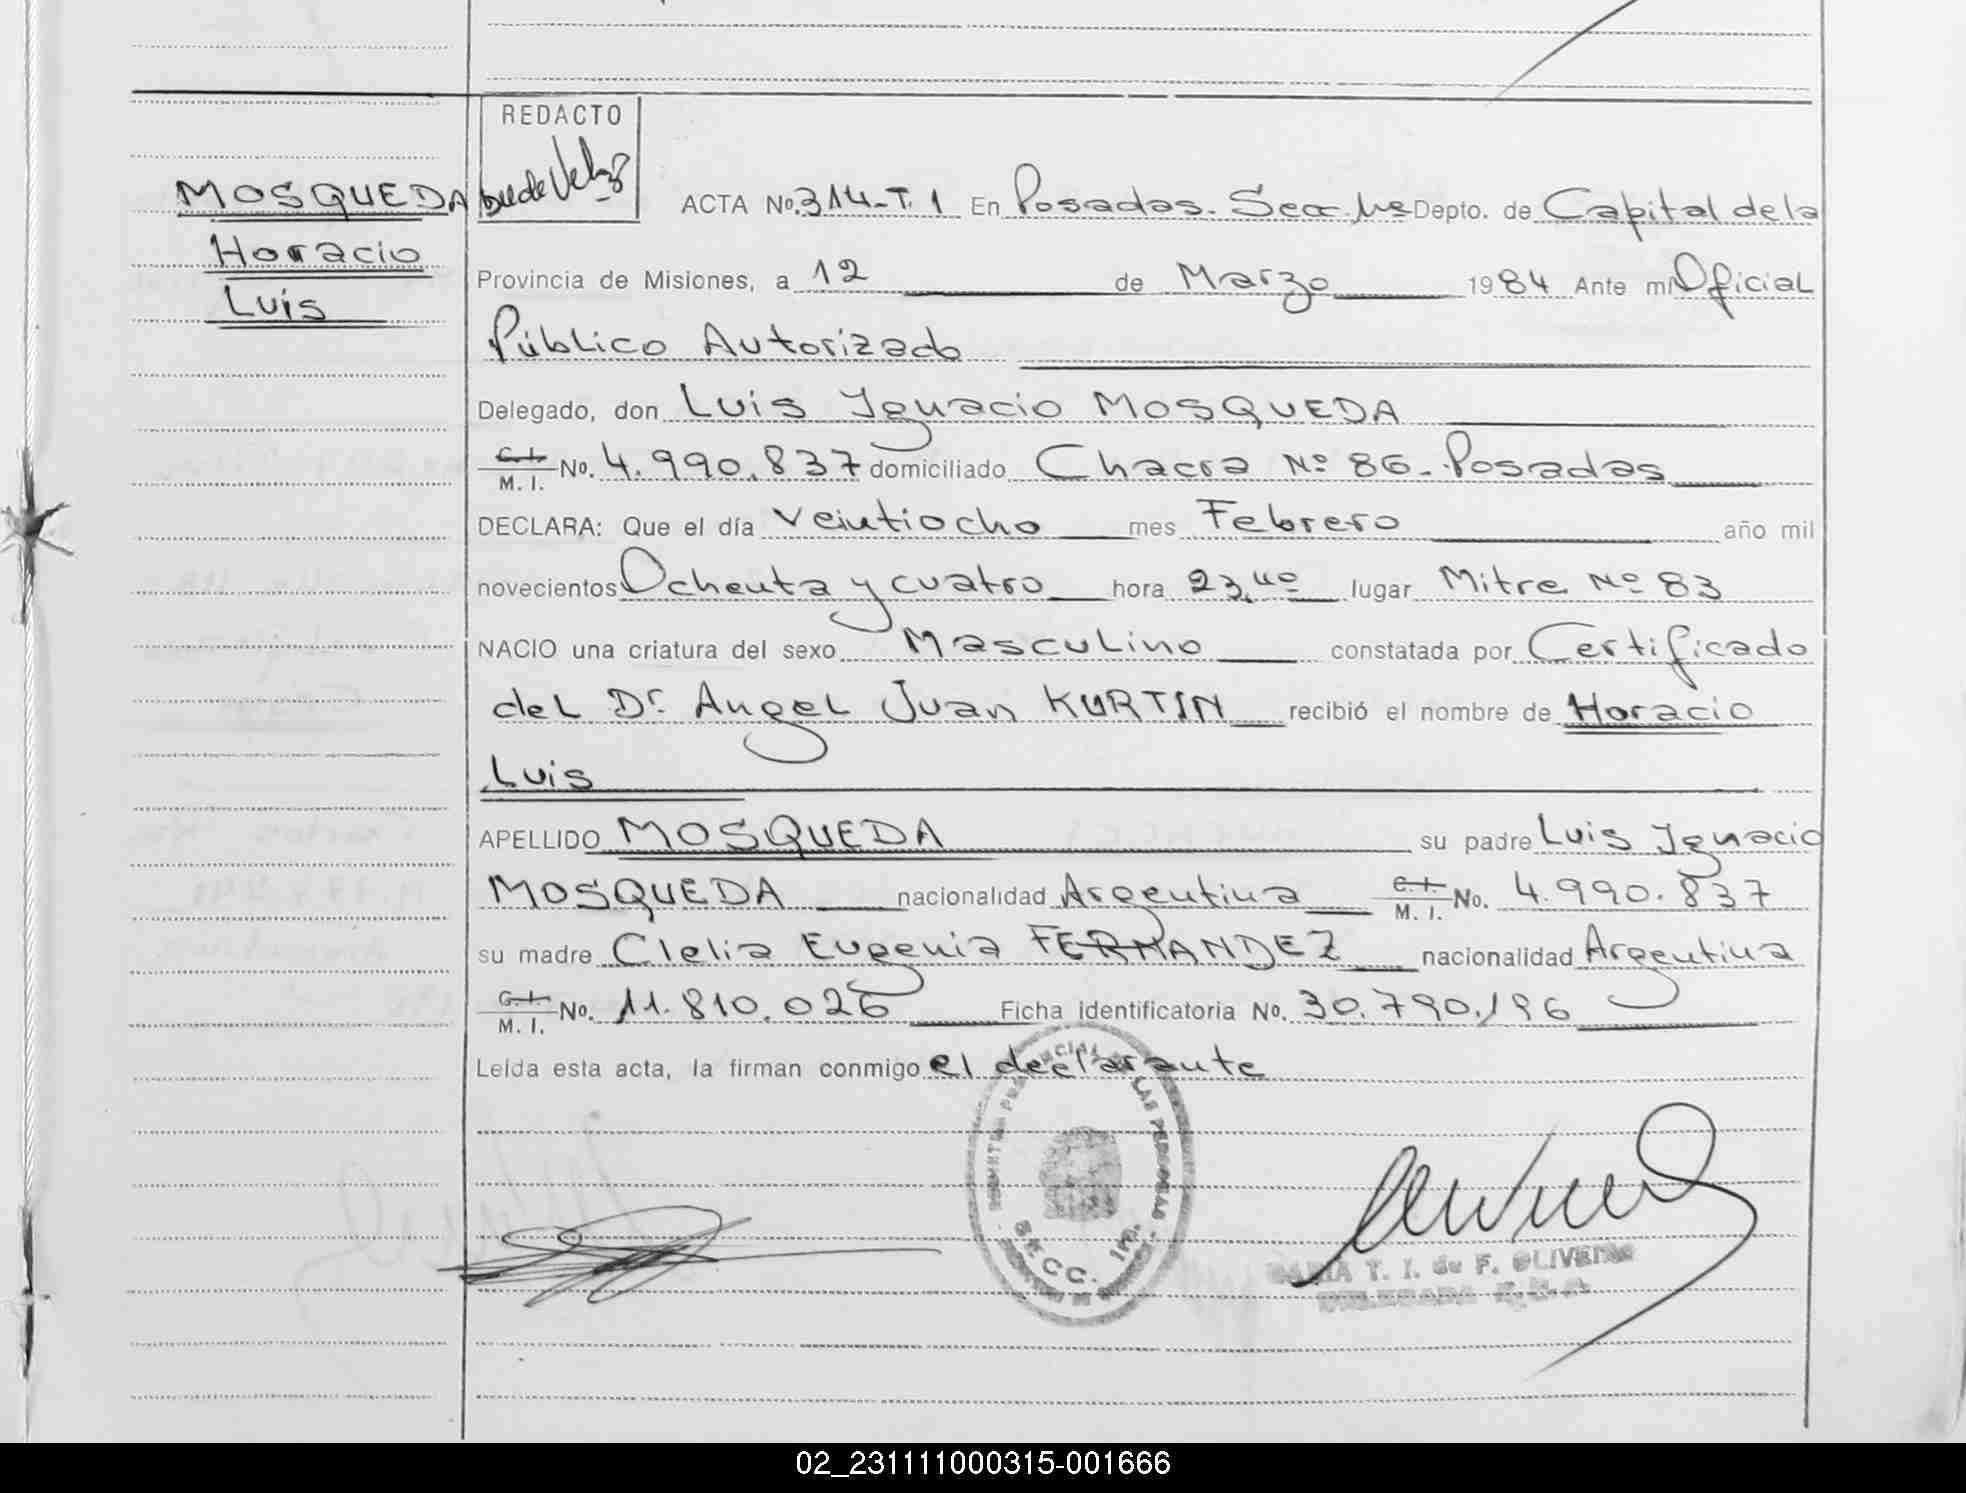 REDACTO
MOSQUEDA
Horacio
Luis
ACTA No. 314-T. 1 En Posadas. Secc. 1ra Depto. de Capital de la
Provincia de Misiones, a 12 de Marzo 1984 Ante mí Oficial
Público Autorizado
Delegado, don Luis Ignacio MOSQUEDA
C. I. M. I. No. 4.990.837 domiciliado Chacra Nº 86.- Posadas
DECLARA: Que el día veintiocho mes Febrero año mil
novecientos Ochenta y cuatro hora 23,40 lugar Mitre Nº 83
NACIO una criatura del sexo Masculino constatada por Certificado
del Dr. Angel Juan KURTIN recibió el nombre de Horacio
Luis
APELLIDO MOSQUEDA su padre Luis Ignacio
MOSQUEDA nacionalidad Argentina C. I. M. I. No. 4.990.837
su madre Clelia Eugenia FERNANDEZ nacionalidad Argentina
C. I. M. I. No. 11.810.026 Ficha identificatoria No. 30.790.196
Leída esta acta, la firman conmigo el declarante
DE LAS PERSONAS
SECC. 1ra.
MARIA T. I. de F. OLIVEIRA
DELEGADA
02_231111000315-001666